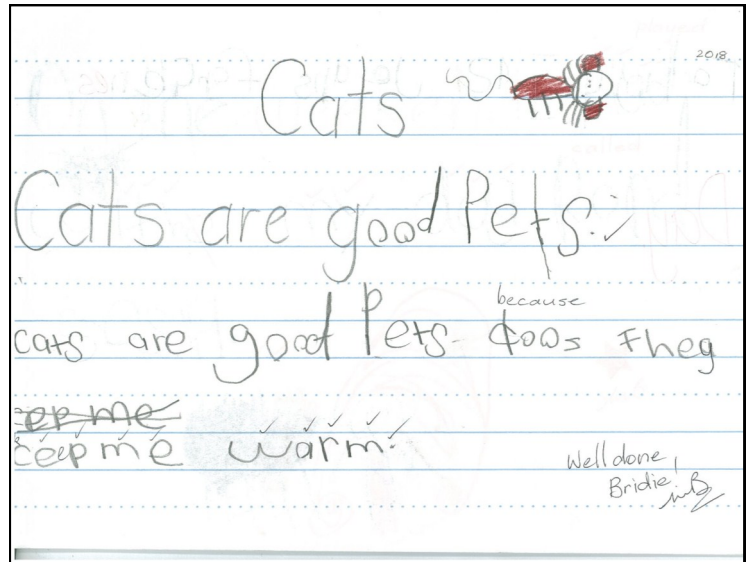 2018.
Cats
Cats are good Pets.
because
cats are good Pets. coos they
ep me
ceep me warm.
Well done,
Bridie